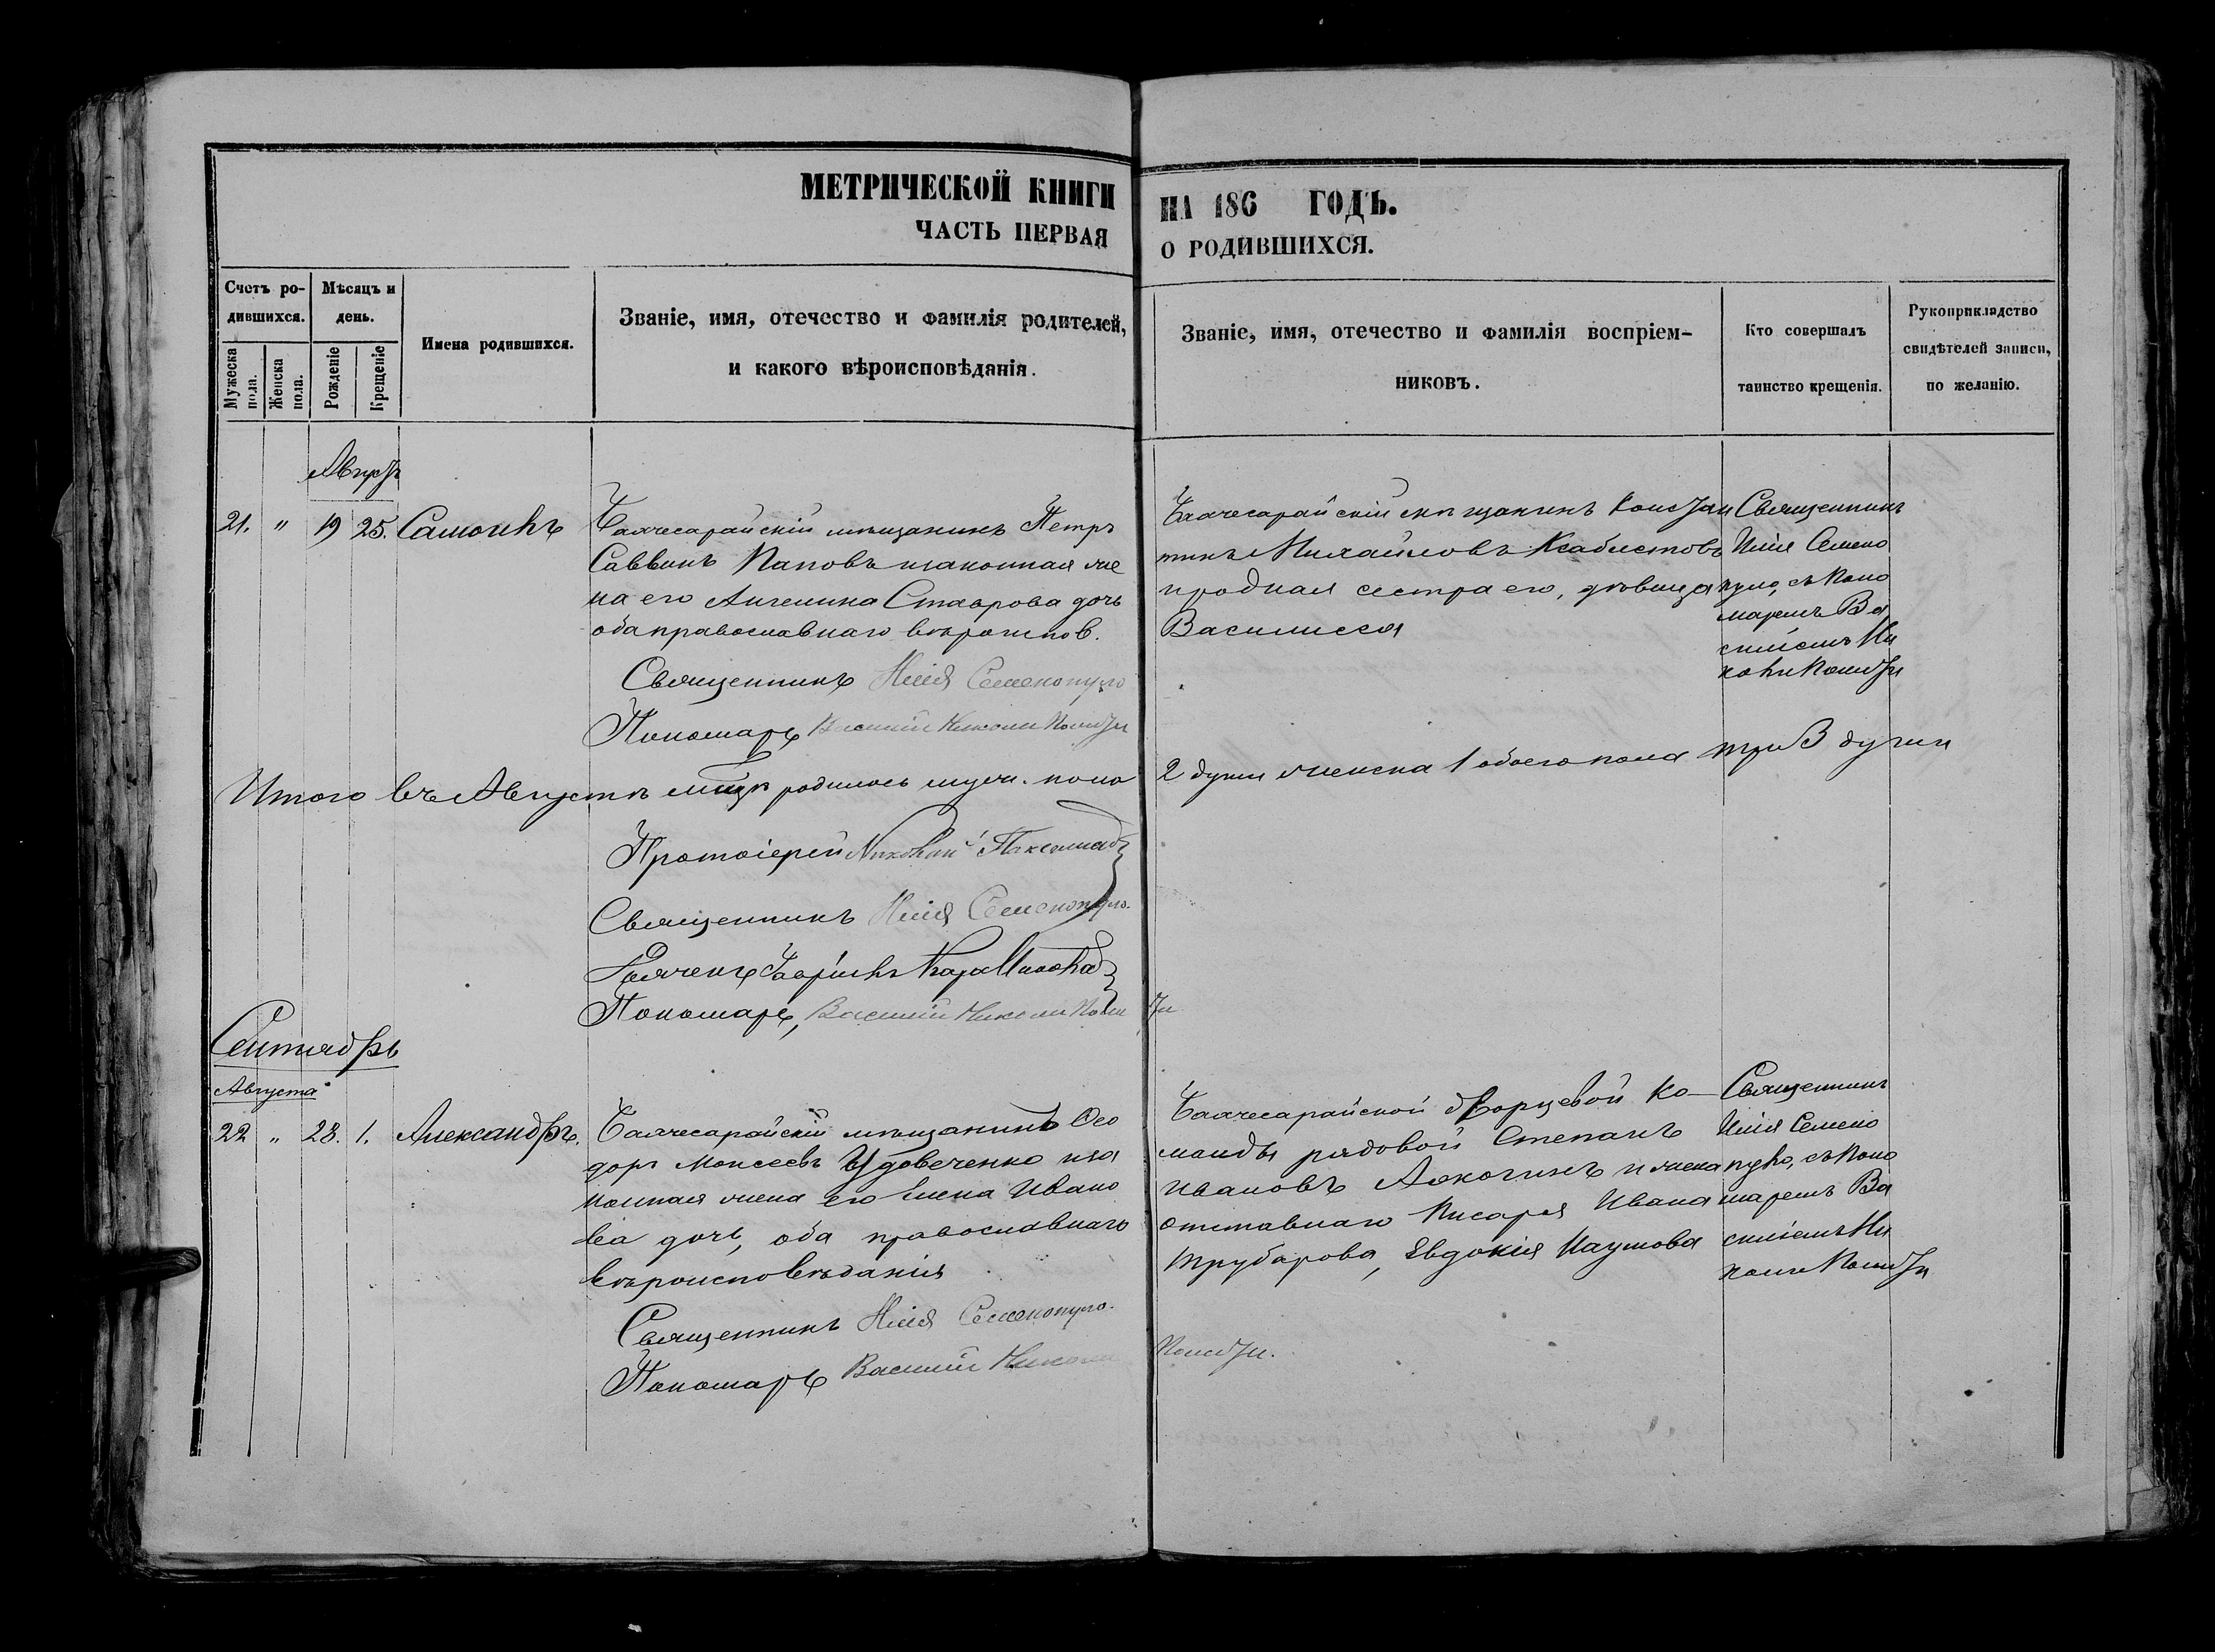 МЕТРИЧЕСКОЙ КНИГИ
ЧАСТЬ ПЕРВАЯ
НА 186 ГОДЪ.
О РОДИВШИХСЯ.
Счетъ ро-
дившихся.
Мужеска пола.
Женска пола.
Мѣсяцъ и
день.
Рожденіе
Крещеніе
Имена родившихся.
Званіе, имя, отечество и фамилія родителей,
и какого вѣроисповѣданія.
Званіе, имя, отечество и фамилія воспріем-
никовъ.
Кто совершалъ
таинство крещенія.
Рукоприкладство
свидѣтелей записи,
по желанію.
Августъ
21. " 19 25. Самоилъ
Бахчесарайскій мѣщанинъ Петръ
Саввинъ Паповъ изаконная же
на его Ангелина Ставрова дочь
оба православнаго вѣроиспов.
Священникъ Илія Семенопуло
Пономарь Василій Николи
Бахчесарайскій мѣщанинъ Констан
тинъ Михайловъ
иродная сестра его, дѣвица
Василисса
Священникъ
Илія Семено
пуло, съ Поно
маремъ Ва
силіемъ Ни
коли
Итого въ Августѣ мцѣ родилось муж. пола
2 души женска 1 обоего пола три 3 души
Протоіерей Николай
Священникъ Илія Семенопуло.
Пономарь, Василій Николи
Сентябрь
Августа
22 " 28. 1. Александръ.
Бахчесарайскій мѣщанинъ Ѳео
доръ Моисеевъ Удовеченко иза
конная жена его Елена Ивано
ва дочь, оба православнаго
вѣроисповѣданія
Священникъ Илія Семенопуло.
Пономарь Василій Николи
Бахчесарайской дворцевой Ко-
манды рядовой Степанъ
Ивановъ Алохинъ и жена
отставнаго Писаря Ивана
Трубарова, Евдокія Наумова
Священникъ
Илія Семено
пуло, съ Поно
маремъ Ва
силіемъ Ни
коли